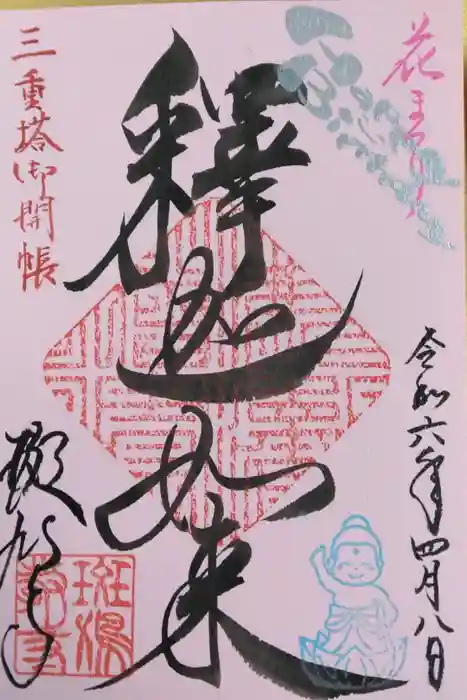 花まつり
令和六年四月八日
釋迦如来
三重塔御開帳
斑鳩